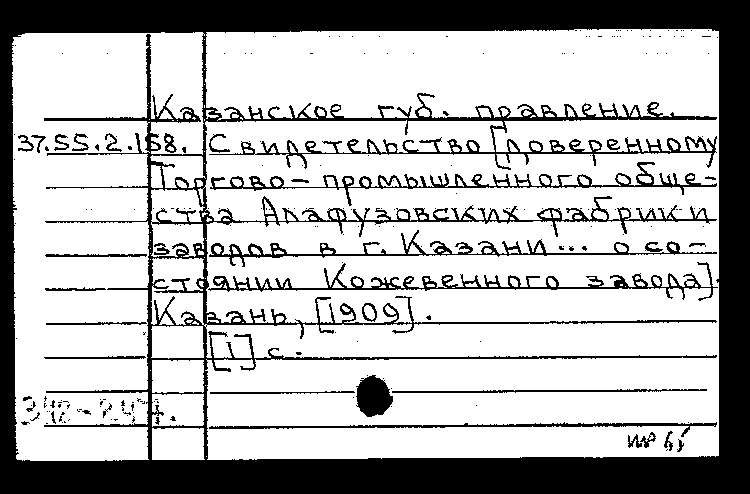 Казанское губ. правление.
37.55.2.158. Свидетельство [доверенному
Торгово-промышленного обще-
ства Алафузовских фабрик и
заводов в г. Казани... о со-
стоянии Кожевенного завода].
Казань, [1909].
[1] с.